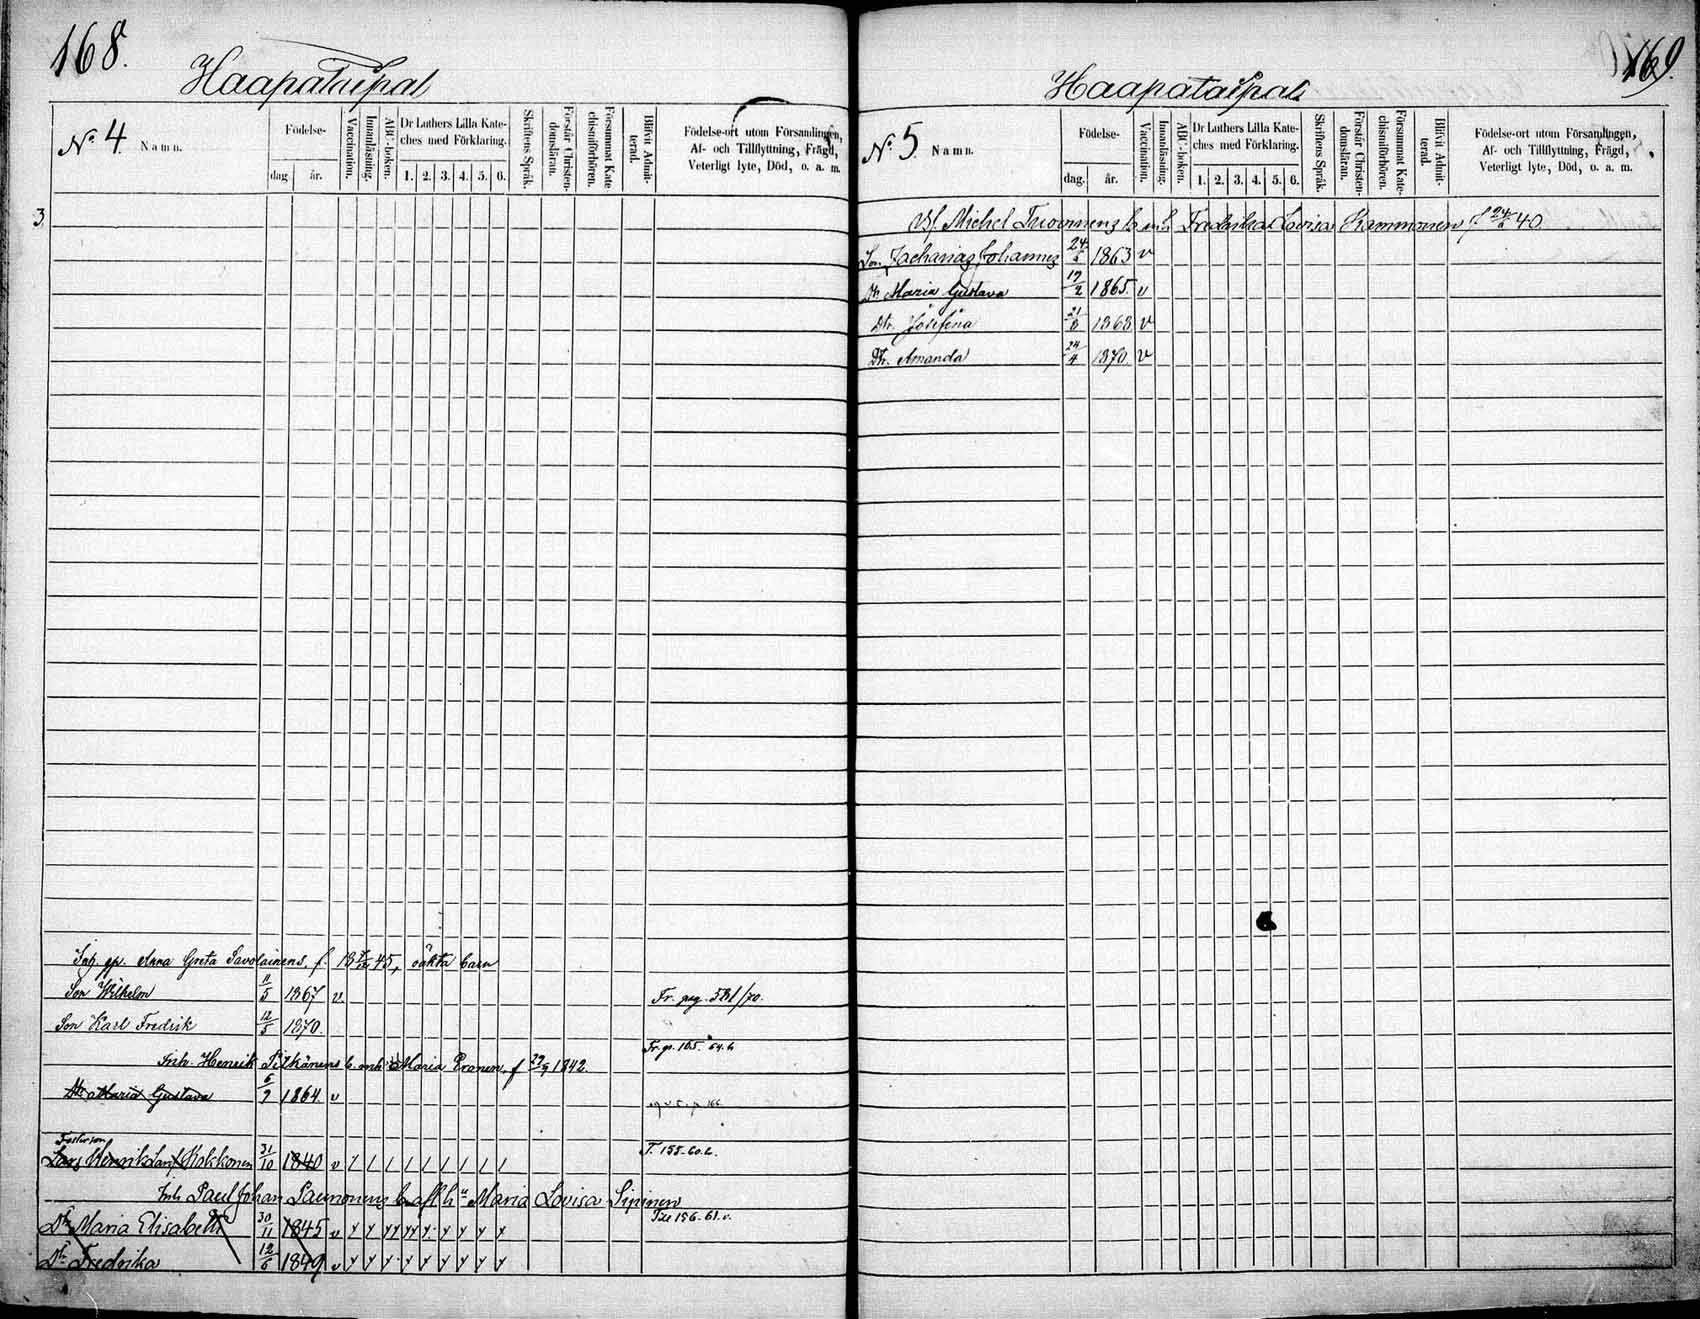 168.
Haapataipal
No 4. Namn.
Födelse-
dag. år.
Vaccination.
Innanläsning.
ABC-boken.
Dr Luthers Lilla Kate-
ches med Förklaring.
1. 2. 3. 4. 5. 6.
Skriftens Språk.
Förstår Christen-
domsläran.
Försummat Kate
chismiförhören.
Blifvit Admit-
terad.
Födelse-ort utom Församlingen,
Af- och Tillflyttning, Frägd,
Veterligt lyte, Död, o. a. m.
3
Inh. gp. Anna Greta Savolainens, f. 45, oäkta barn
Son Wilhelm 11/5 1867 v. Fr. pag. 581/70.
Son Karl Fredrik 12/5 1870.
Inh. Henrik Pitkänens b. mh Maria Eronen, f 29/9 1842.
Dtr Maria Gustava 6/9 1864 v
Fosterson
Lars Henrik Larsf Kokkonen 31/10 1840 v
Inh Paul Johan Launonens b af h Maria Lovisa Sipinen
Dtr Maria Elisabeth 30/11 1845 v
Dtr Fredrika 12/6 1849 v
169.
Haapataipal
No 5. Namn.
Födelse-
dag. år.
Vaccination.
Innanläsning.
ABC-boken.
Dr Luthers Lilla Kate-
ches med Förklaring.
1. 2. 3. 4. 5. 6.
Skriftens Språk.
Förstår Christen-
domsläran.
Försummat Kate-
chismiförhören.
Blifvit Admit-
terad.
Födelse-ort utom Församlingen,
Af- och Tillflyttning, Frägd,
Veterligt lyte, Död, o. a. m.
Michel Tuovinens b m h Fredrika Lovisa Kammonen f 40
Son Zacharias Johannes 1863 v
Dtr Maria Gustava 19/2 1865. v
Dtr Josefina 21/8 1868 v
Dtr. Amanda 24/4 1870 v